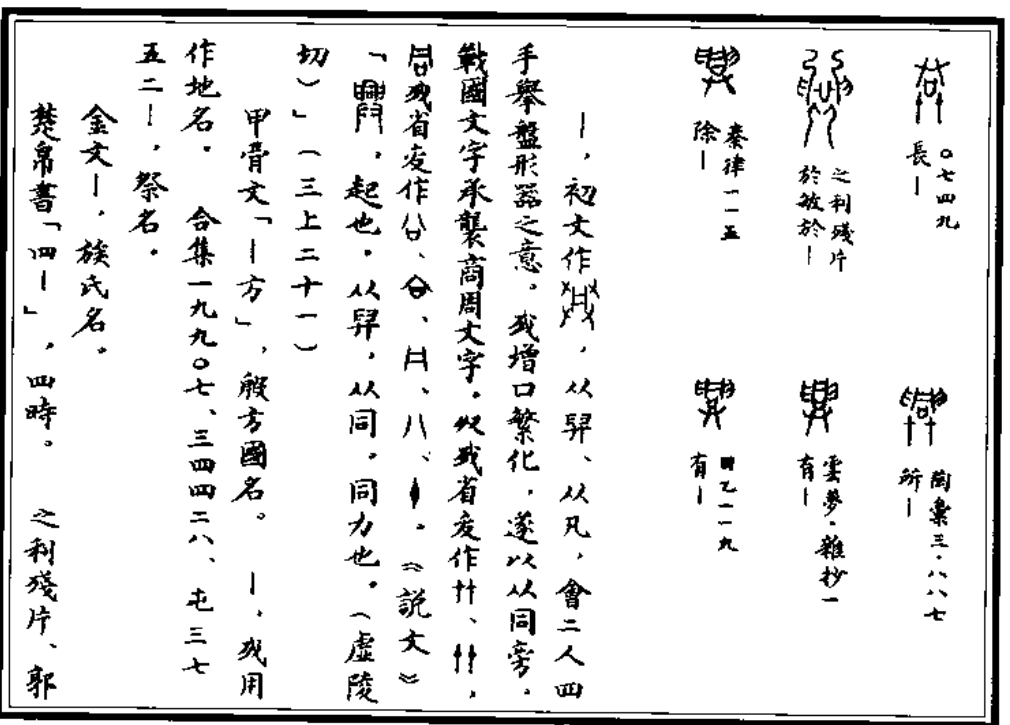 ○七四九
長｜
陶彙三·八八七
所｜
之利殘片
於敓於｜
雲夢·雜抄一
有｜
秦律一一五
除｜
日乙一一九
有｜
｜，初文作，从舁、从凡，會二人四
手舉盤形器之意。或增口繁化，遂以从同旁。
戰國文字承襲商周文字。或省变作、，
或省变作、、、、。《說文》
「，起也。从舁，从同。同力也。（虛陵
切）」（三上二十一）
甲骨文「｜方」，殷方國名。 ｜，或用
作地名。 合集一九九○七、三四四二八、屯三七
五二｜，祭名。
金文｜，族氏名。
楚帛書「四｜」，四時。 之利殘片、郭